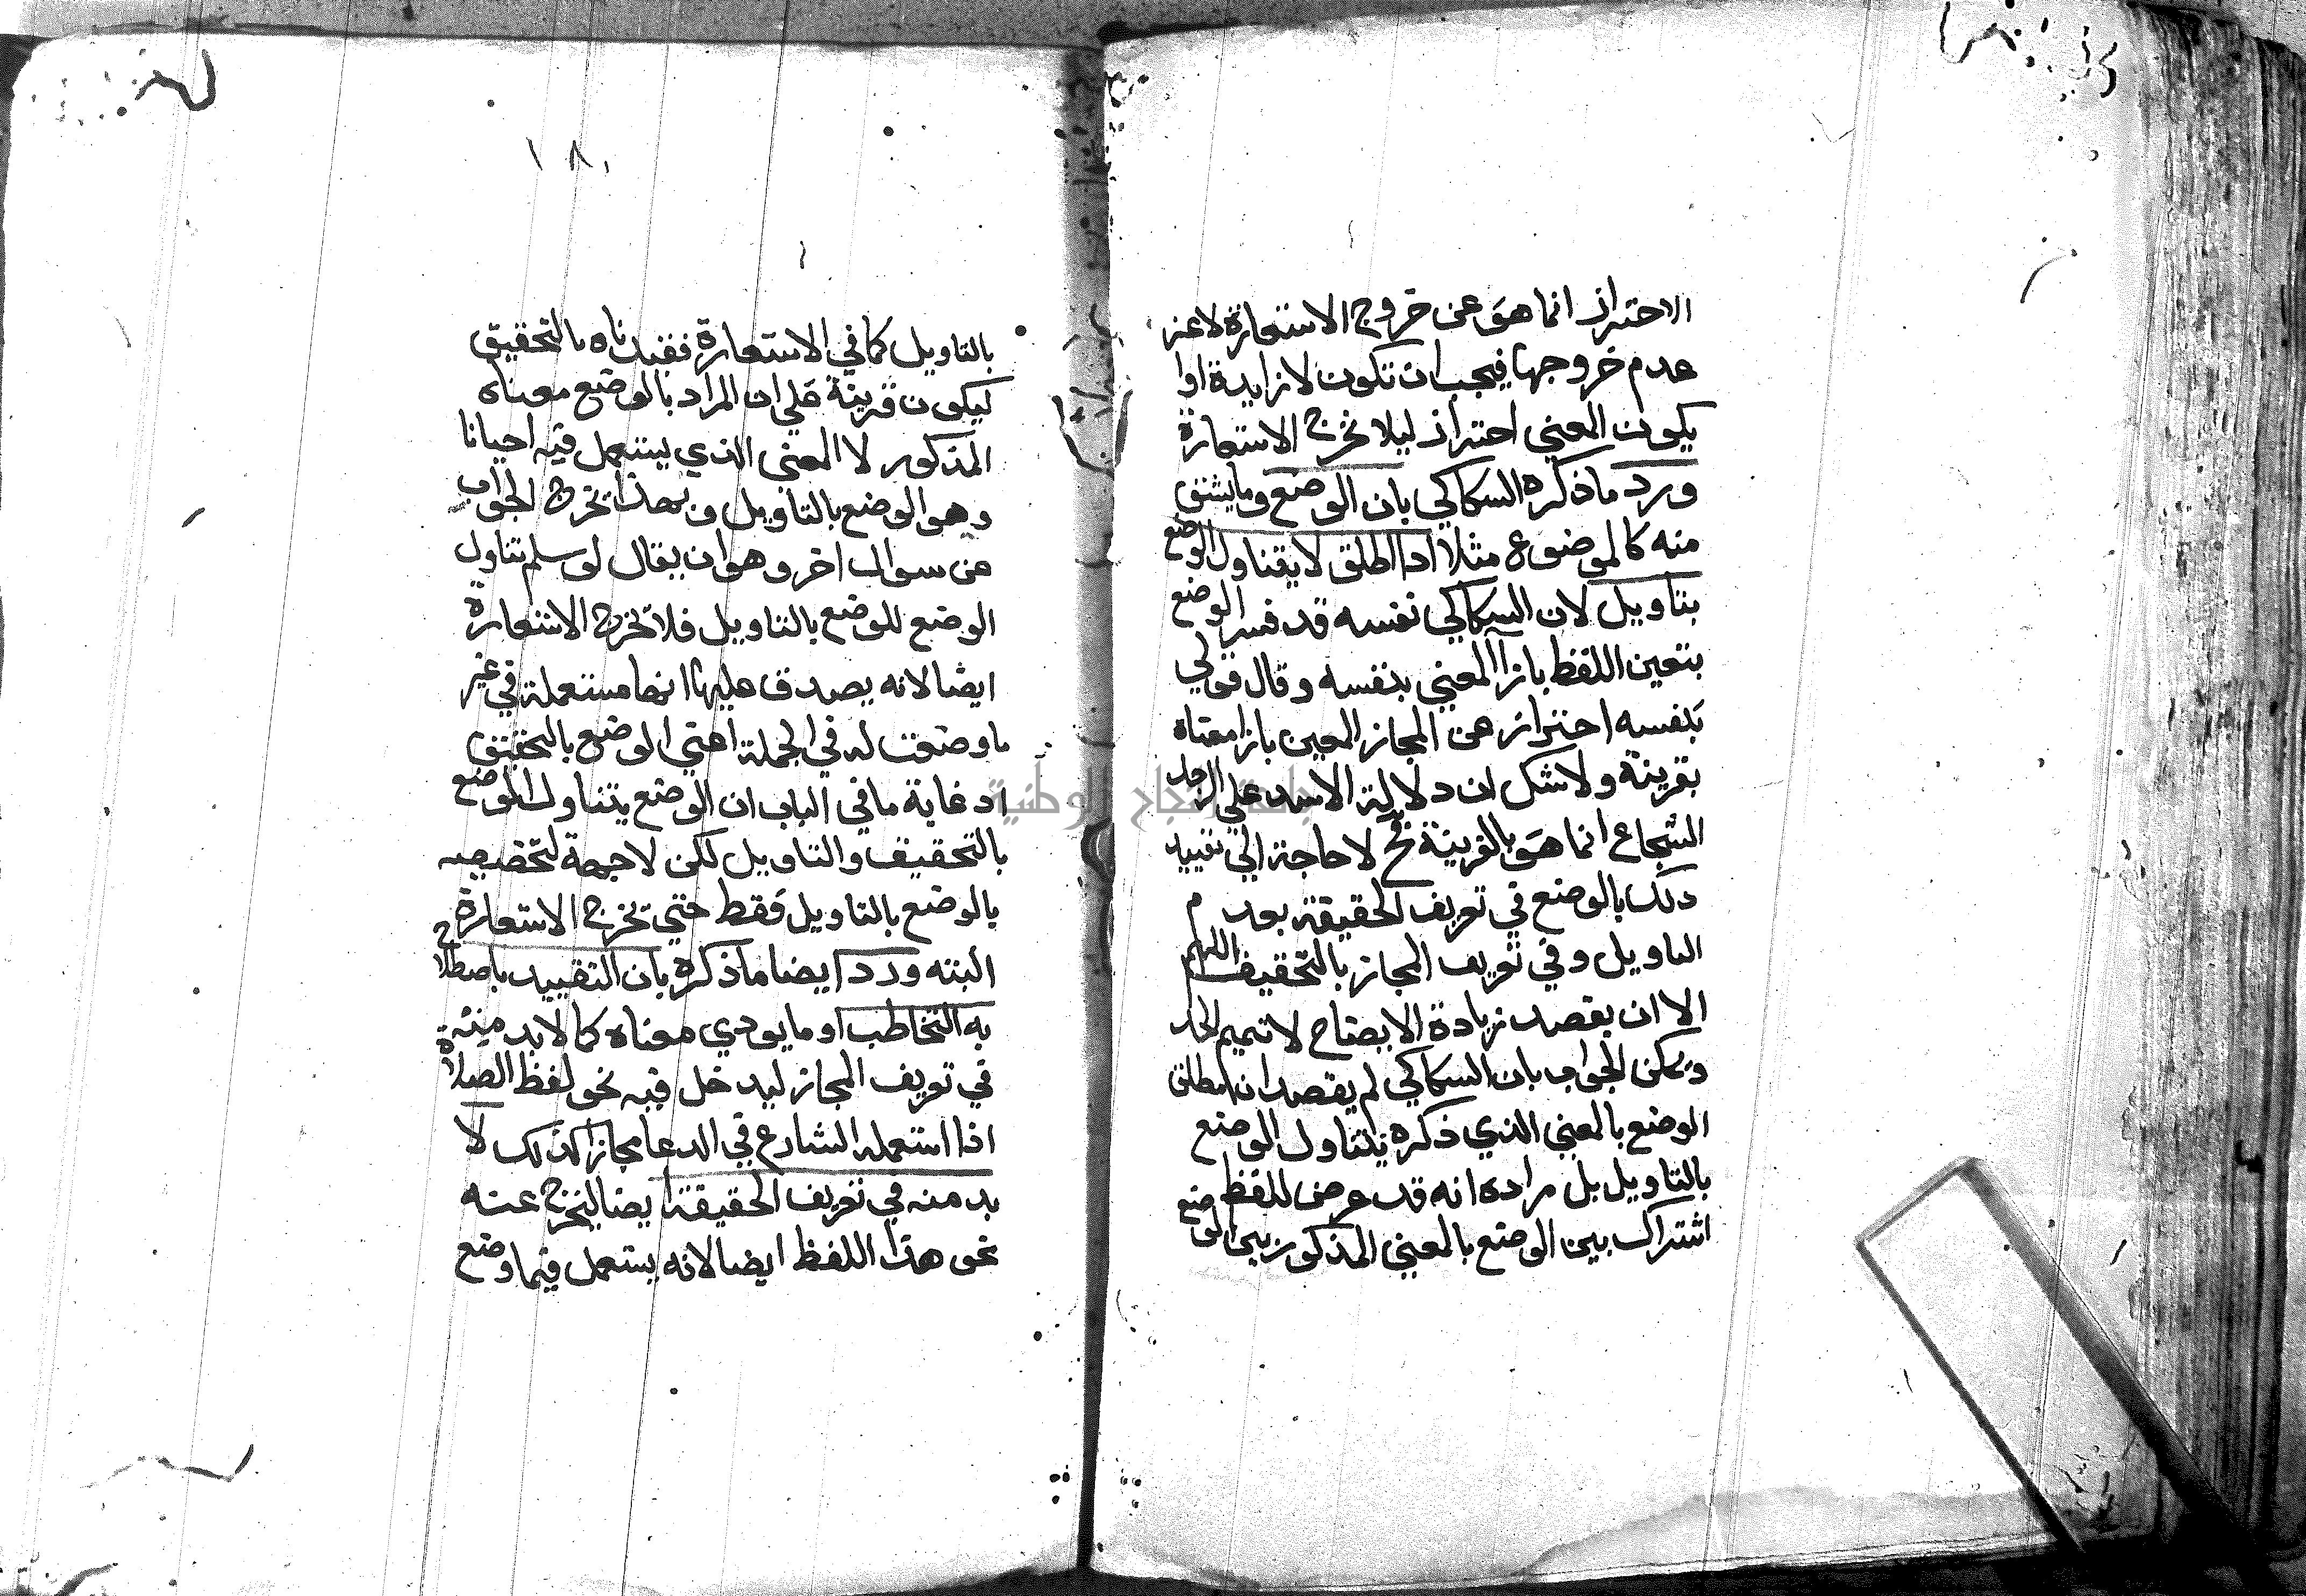 الاحتراز انما هو عن خروج الاستعارة لا عن
عدم خروجها فيجب ان تكون لا زايدة اوا
يكون المعني احتراز ليلا تخرج الاستعارة
ورد ما ذكره السكاكي بان الوضع وما يشتق
منه كالموضوع مثلا اذا اطلق لا يتناول الوضع
بتاويل لان السكاكي نفسه قد فسر الوضع
بتعين اللفظ بازآ المعني بنفسه وقال قولي
بنفسه احتراز عن المجاز المعين بازا معناه
بقرينة ولا شك ان دلالة الاسد علي الرجل
الشجاع انما هو بالقرينة فح لا حاجة الي تقييد
ذلك بالوضع في تعريف الحقيقة بعدم
التاويل وفي تعريف المجاز بالتحقيق اللهم
الا ان يقصد زيادة الايضاح لا تتميم الحد
ويمكن الجواب بان السكاكي لم يقصد ان مطلق
الوضع بالمعني الذي ذكره يتناول الوضع
بالتاويل بل مراده انه قد عرض للفظ
اشتراك بين الوضع بالمعني المذكور وبين الوضع
١٨١
بالتاويل كما في الاستعارة فقيدناه بالتحقيق
ليكون قرينة علي ان المراد بالوضع معناه
المذكور لا المعني الذي يستعمل فيه احيانا
وهو الوضع بالتاويل وبهذا يخرج الجواب
عن سوال اخر وهو ان يقال لو سلم تناول
الوضع للوضع بالتاويل فلا تخرج الاستعارة
ايضا لانه يصدق عليها انها مستعملة في غير
ما وضعت له في الجملة اعني الوضع بالتحقيق
اذ غاية ما في الباب ان الوضع يتناول الوضع
بالتحقيق والتاويل لكن لا جهة لتخصيصه
بالوضع بالتاويل فقط حتي تخرج الاستعارة
البته ورد ايضا ما ذكره بان التقييد باصطلاح
به التخاطب او ما يودي معناه كما لا بد منه
في تعريف المجاز ليدخل فيه نحو لفظ الصلاة
اذا استعمله الشارع في الدعا مجازا كذلك لا
بد منه في تعريف الحقيقة ايضا ليخرج عنه
نحو هذا اللفظ ايضا لانه يستعمل فيما وضع
جامعة النجاح الوطنية